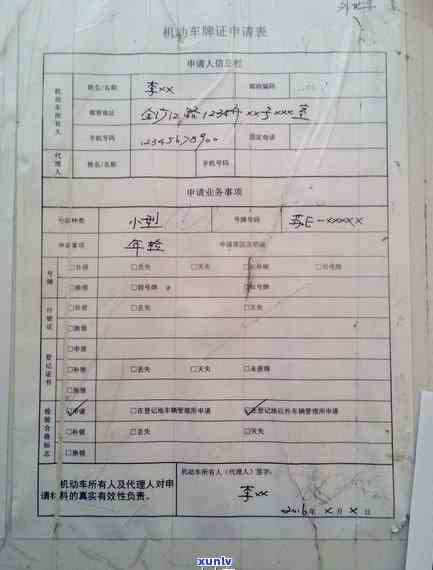 外地车
机动车牌证申请表
申请人信息栏
机动车所有人 姓名/名称 李xx 邮政编码
邮寄地址 12弄 xx号xxx室
手机号码 12345678900 固定电话
代理人 姓名/名称 手机号码
申请业务事项
号牌种类 小型 号牌号码 苏E-xxxxx
申请事项 年检 申请原因及明细
号牌 □补领 □丢失 □灭失
□换领 □前号牌 □后号牌
行驶证 □补领 □丢失 □灭失
□换领
登记证书 □申领
□补领 □丢失 □灭失 □未获得
□换领
检验合格标志 ☑申请 □在登记地车辆管理所申请 ☑在登记地以外车辆管理所申请
□补领 □丢失 □灭失
□换领
机动车所有人及代理人对申 机动车所有人（代理人）签字：
请材料的真实有效性负责。 李xx
2016年 x 月 x 日
xunlv